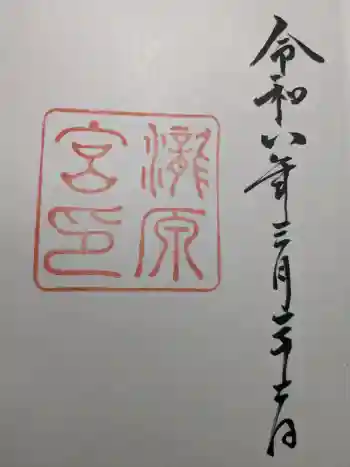 令和六年三月二十二日
瀧原
宮印